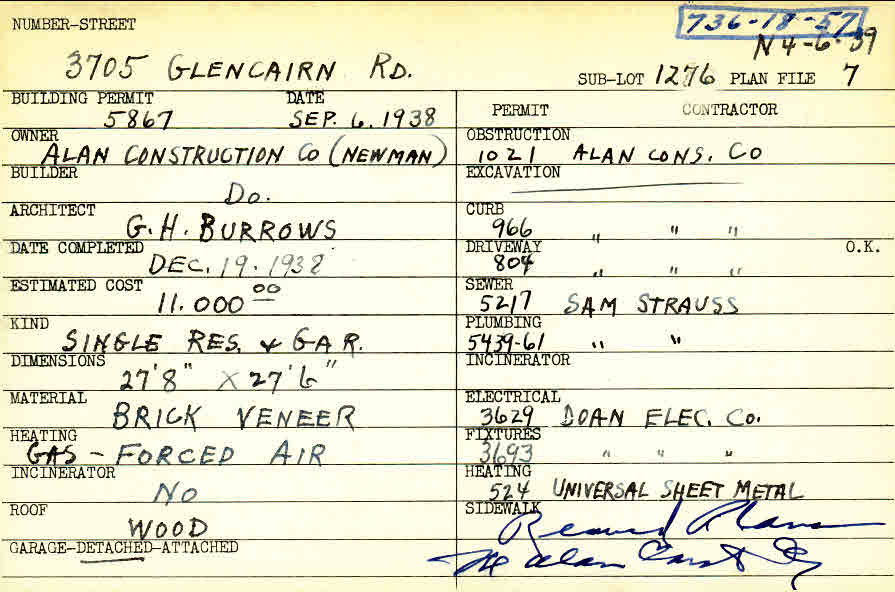 NUMBER-STREET
736-18-57
N 4-6-39
3705 GLENCAIRN RD.
SUB-LOT 1276 PLAN FILE 7
BUILDING PERMIT DATE
5867 SEP. 6. 1938
OWNER
ALAN CONSTRUCTION CO (NEWMAN)
BUILDER
DO.
ARCHITECT
G. H. BURROWS
DATE COMPLETED
DEC. 19. 1938
ESTIMATED COST
11.000 00
KIND
SINGLE RES. & GAR.
DIMENSIONS
27'8" X 27'6"
MATERIAL
BRICK VENEER
HEATING
GAS - FORCED AIR
INCINERATOR
NO
ROOF
WOOD
GARAGE-DETACHED-ATTACHED
PERMIT CONTRACTOR
OBSTRUCTION
1021 ALAN CONS. CO
EXCAVATION
CURB
966 " " "
DRIVEWAY O.K.
804 " " "
SEWER
5217 SAM STRAUSS
PLUMBING
5439-61 " "
INCINERATOR
ELECTRICAL
3629 DOAN ELEC. CO.
FIXTURES
3693 " " "
HEATING
524 UNIVERSAL SHEET METAL
SIDEWALK
Received Plans
Alan Const Co